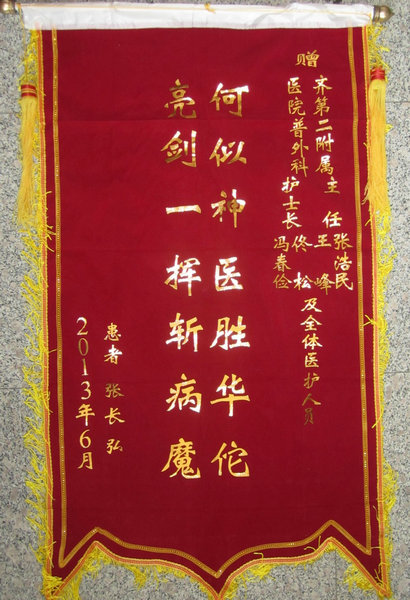 赠
齐第二附属
医院普外科
主任 张浩民
王峰
护士长 佟松
冯春俭
及全体医护人员
何似神医胜华佗
亮剑一挥斩病魔
患者 张长弘
2013年6月